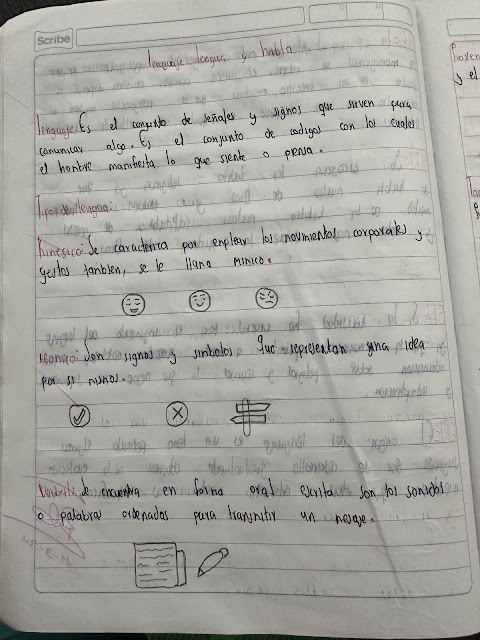 Scribe
lenguaje lengua y habla
lenguaje: Es el conjunto de señales y signos que sirven para
comunicar algo. Es el conjunto de codigos con los cuales
el hombre manifiesta lo que siente o piensa.
Tipos de lengua:
Kinesico: Se caracteriza por emplear los movimientos corporales y
gestos tambien, se le llama mimico.
Iconico: Son signos y simbolos que representan una idea
por si mismos.
se encuentra en forma oral escrita son los sonidos
o palabras ordenados para transmitir un
y el